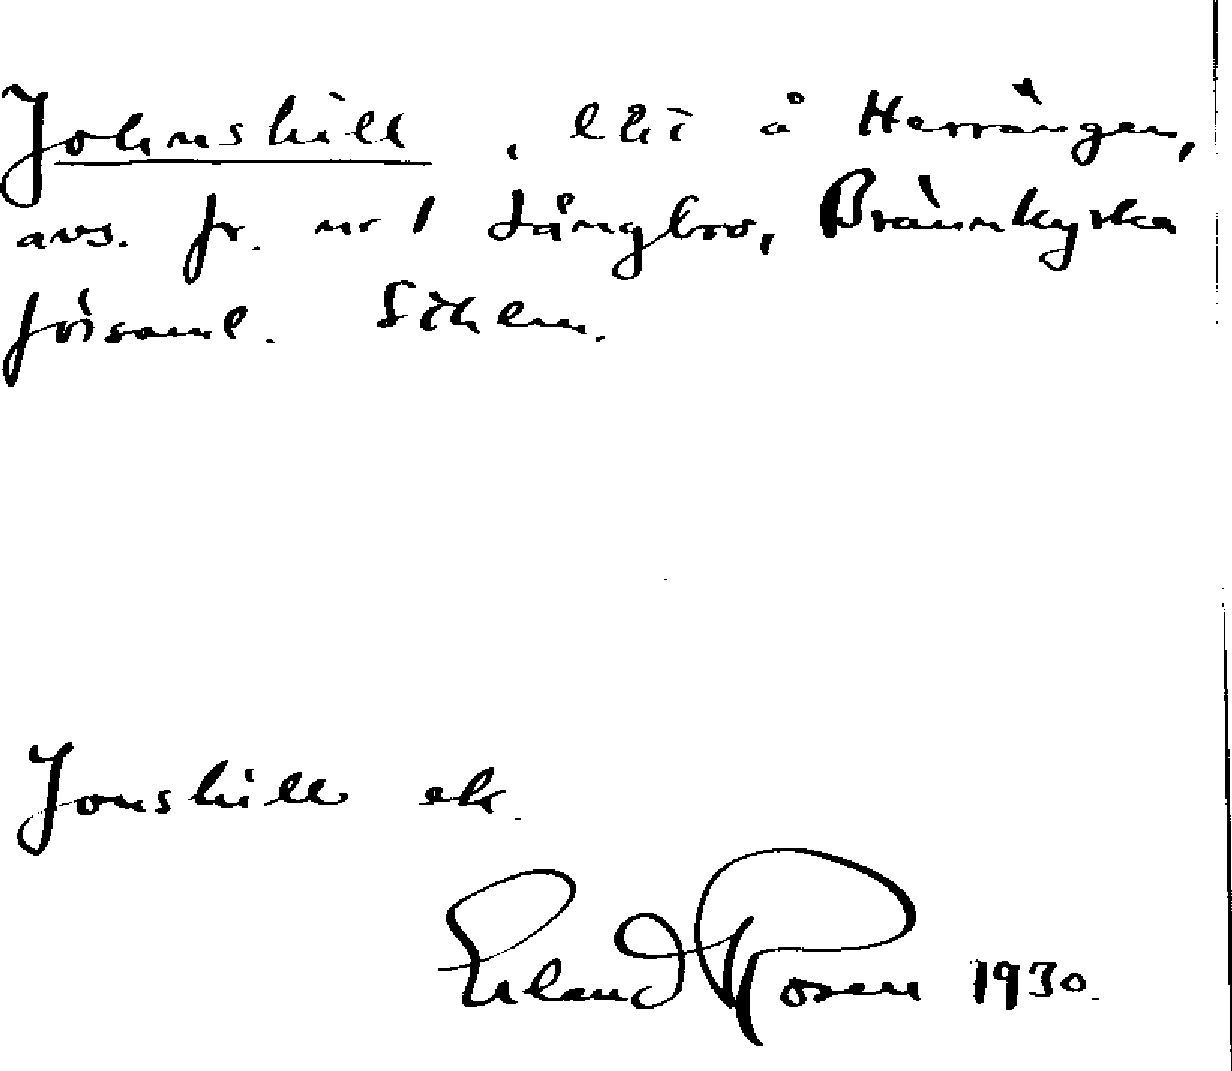 Johnshill, lht å Herrängen,
avs. fr. nr 1 Långbro, Brännkyrka
församl. Sthlm.
Jonshill ek.
Erland Rosén 1930.